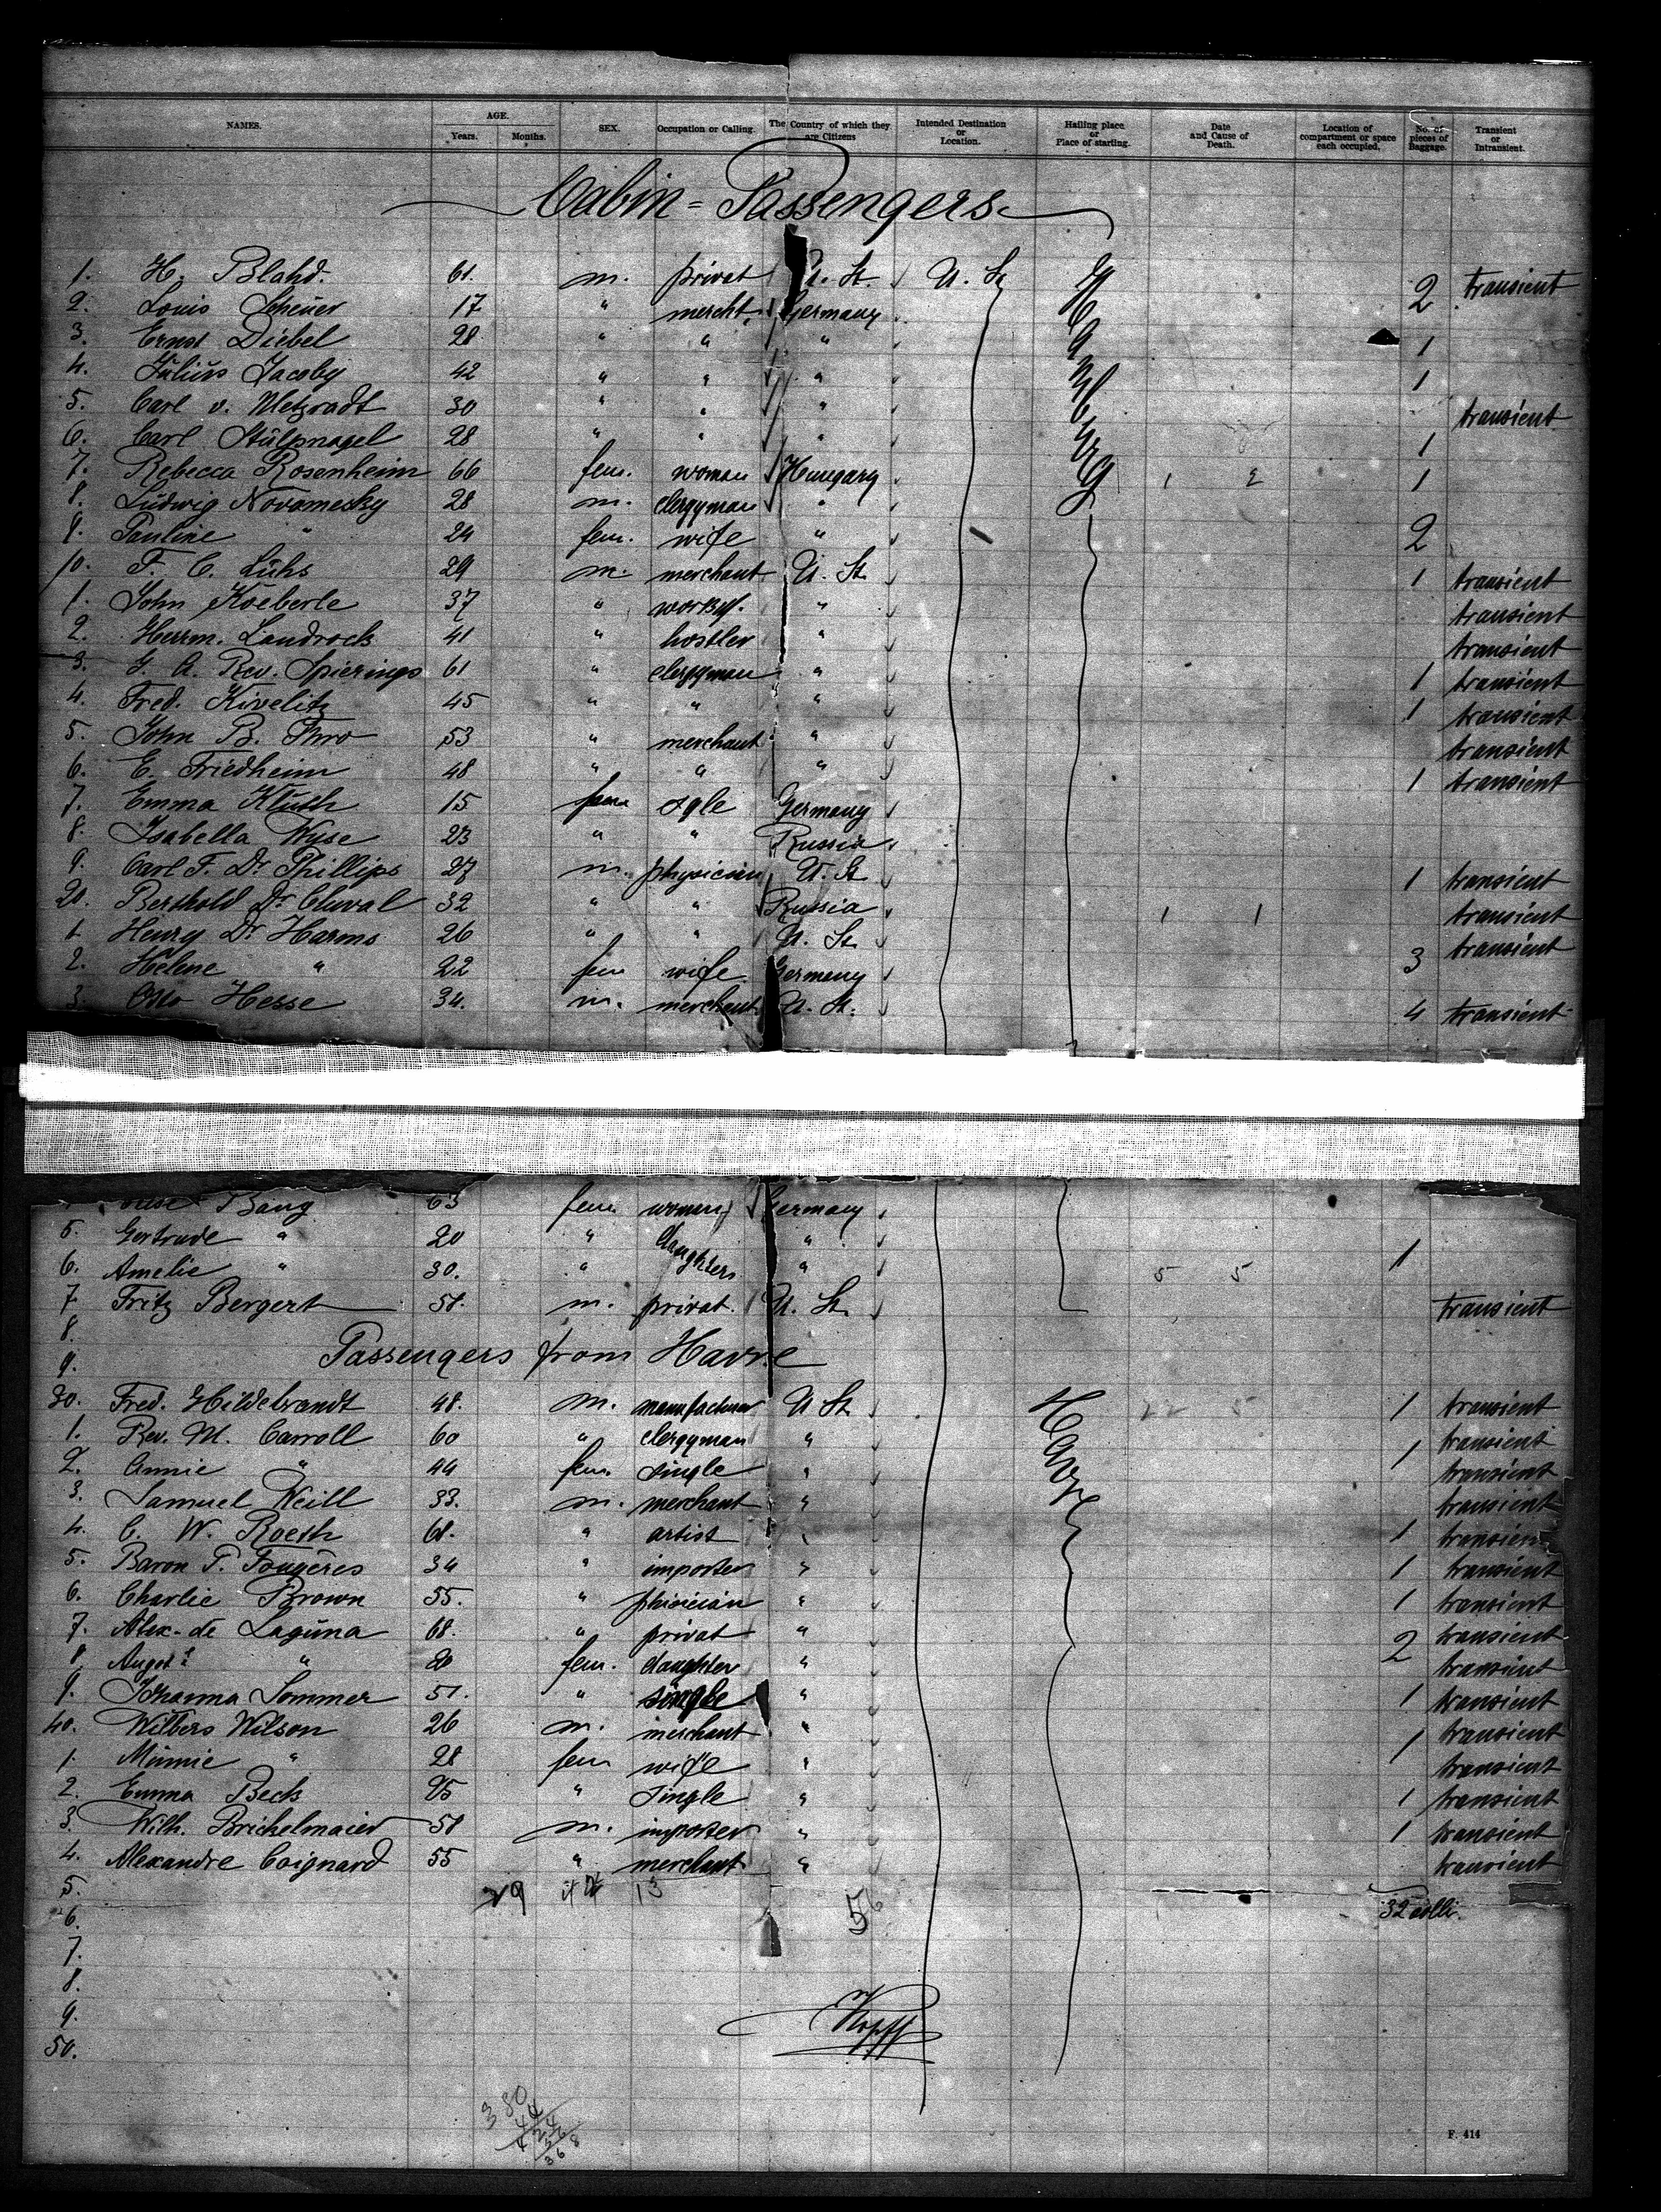 NAMES. AGE. Years. Months. SEX. Occupation or Calling. The Country of which they are Citizens Intended Destination or Location. Hailing place or Place of starting. Date and Cause of Death. Location of compartment or space each occupied. No. of pieces of Baggage. Transient or Intransient.
Cabin = Passengers
1. H. Blahd. 61. m. privat U. St. U. St. Hamburg 2 transient
2. Louis Scheuer 17 " mercht. Germany
3. Ernst Diebel 28 " " " 1
4. Julius Jacoby 42 " " " 1
5. Carl v. Metzradt 30 " " " transient
6. Carl Stülpnagel 28 " " " 1
7. Rebecca Rosenheim 66 fem. woman Hungary 1 2 1
8. Ludwig Novomesky 28 m. clergyman "
9. Pauline " 24 fem. wife " 2
10. F. C. Lühs 29 m. merchant U. St. 1 transient
1. John Koeberle 37 " " transient
2. Herrm. Landrock 41 " hostler " transient
3. J. A. Rev. Spierings 61 " clergyman " 1 transient
4. Fred. Kivelitz 45 " " " 1 transient
5. John B. Thro 53 " merchant " transient
6. E. Friedheim 48 " " " 1 transient
7. Emma Kluth 15 fem sgle Germany
8. Isabella Wyse 23 " " Russia
9. Carl F. Dr. Phillips 27 m. physician U. St. 1 transient
20. Berthold Dr. Chuval 32 " " Russia 1 1 transient
1. Henry Dr. Harms 26 " " U. St. transient
2. Helene " 22 fem wife Germany 3
3. Otto Hesse 34. m. merchant U. St. 4 transient
Bang 63 fem woman Germany
5. Gertrude " 20 " daughters "
6. Amelie " 30. " " 5 5 1
7. Fritz Bergert 58. m. privat. U. St. transient
8.
9. Passengers from Havre
30. Fred. Hildebrandt 48. m. manufacturer U St. Havre 22 5 1 transient
1. Rev. M. Carroll 60 " clergyman " transient
2. Annie " 44 fem. single " 1 transient
3. Samuel Weill 33. m. merchant " transient
4. C. W. Roeth 68. " artist " 1 transient
5. Baron P. Fougères 34 " importer " 1 transient
6. Charlie Brown 55. " phisician " 1 transient
7. Alex. de Laguna 68. " privat " 2 transient
8. " 20 fem. daughter " transient
9. Johanna Sommer 51. " single " 1 transient
40. Wilbers Wilson 26 m. merchant " transient
1. Minnie " 28 fem wife " 1 transient
2. Emma Beck 25 " single " 1 transient
3. Wilh. Brichelmaier 58 m. importer " 1 transient
4. Alexandre Coignard 55 " merchant " transient
5. 29 13
6. 56 32 colli.
7.
8.
9. Kopff
50.
380
F. 414